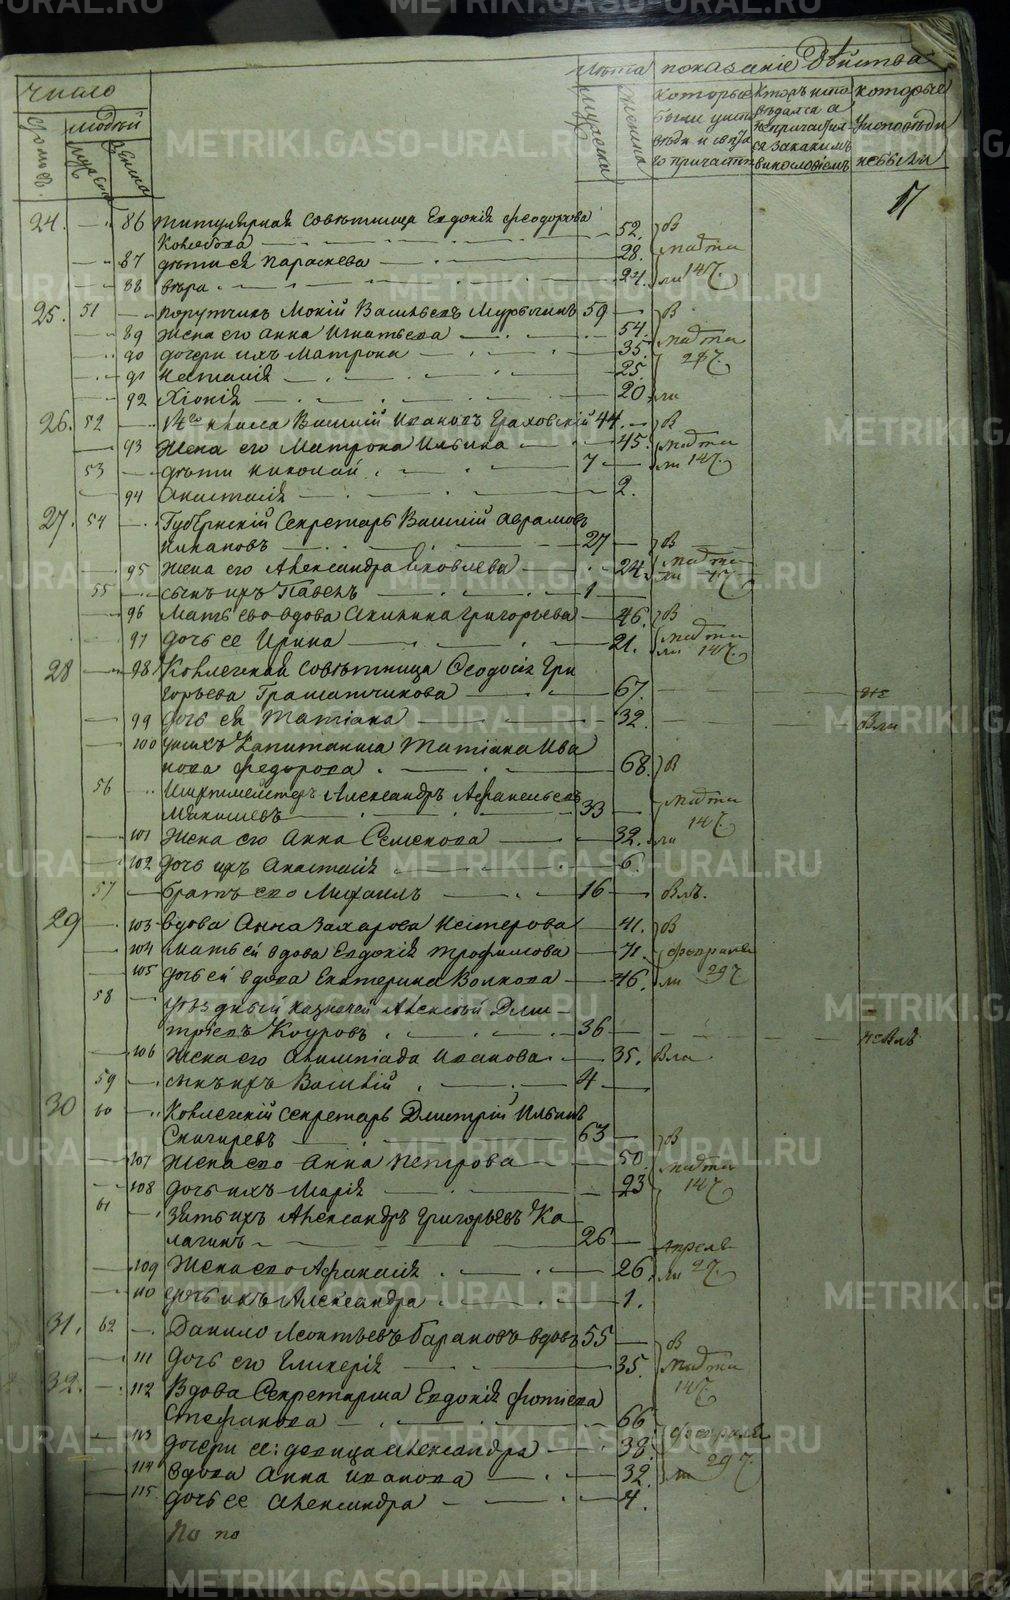 METRIKI.GASO-URAL.RU
число
лѣта показаніе дѣйства
домовъ
людей
мужеска
женска
мужеска
женска
которые были у исповѣди и св: причастія
которые исповѣдался а не причастился за какимъ винословіемъ
которые у исповѣди не были
17
24. 86 титулярная совѣтница Евдокія Феодорова
52. в
87 дѣти ея Параскева 28. марта
88 вѣра 24. ли 147.
25. 51 порутчикъ Мокій Васильевъ 59 в
89 жена его Анна Игнатьева 54. марта
90 дочери ихъ Матрона 35.
91 25.
92 Хіонія 20. ли
26. 52 14го класса Василій Ивановъ Граховскій 44. в
93 Жена его Матрона Ильина 45. марта
53 дѣти николай 7 ли 147.
94 Анастасія 2.
27. 54 Губернскій Секретарь Василій Аврамовъ
27 в
95 жена его Александра Яковлева 24. марта
55 сынъ ихъ Павелъ 1 ли
96 Мать его вдова Акилина Григорьева 46. в
97 дочь ее Ирина 21. марта ли 147.
28 98 Коллежская совѣтница Ѳеодосія Гри
горьева Граматчикова 67.
99 дочь ея Татіана 32. вли
100 у нихъ Капитанша Татіана Ива
нова Федорова 68. в
56 Шихтмейстеръ Александръ Афанасьевъ
33 марта 147.
101 Жена его Анна Семенова 32. ли
102 дочь ихъ Анастасія 6.
57 братъ его Михаилъ 16
29 103 вдова Анна Захарова Нестерова 41. в
104 Мать ей вдова Евдокія Трофимова 71. февраля
105 дочь ей вдова Екатерина Волкова 46. ли 297
58 уѣздный казначей Алексѣй Дми
тріевъ 36
106 Жена его Олимпіада Иванова 35. вли
59 сынъ ихъ Василій 4
30 60 Коллежскій Секретарь Дмитрій Ильинъ
Снигиревъ 63 в
107 Жена его Анна Петрова 50 марта
108 дочь ихъ Марія 23 147.
61 зять ихъ Александръ Григорьевъ Ка
лагинъ 26 апреля
109 Жена его Афанасія 26 ли 297.
110 дочь ихъ Александра 1.
31. 62 Данило Леонтьевъ Барановъ вдовъ 55 в
111 Дочь его Гликерія 35. марта
32. 112 Вдова Секретарша Евдокія Фотіева 147
Стефанова 66 февраля
113 дочери ее: девица Александра 38.
114 вдова Анна Иванова 32. ли 297.
115 дочь ее Александра 4.
По по